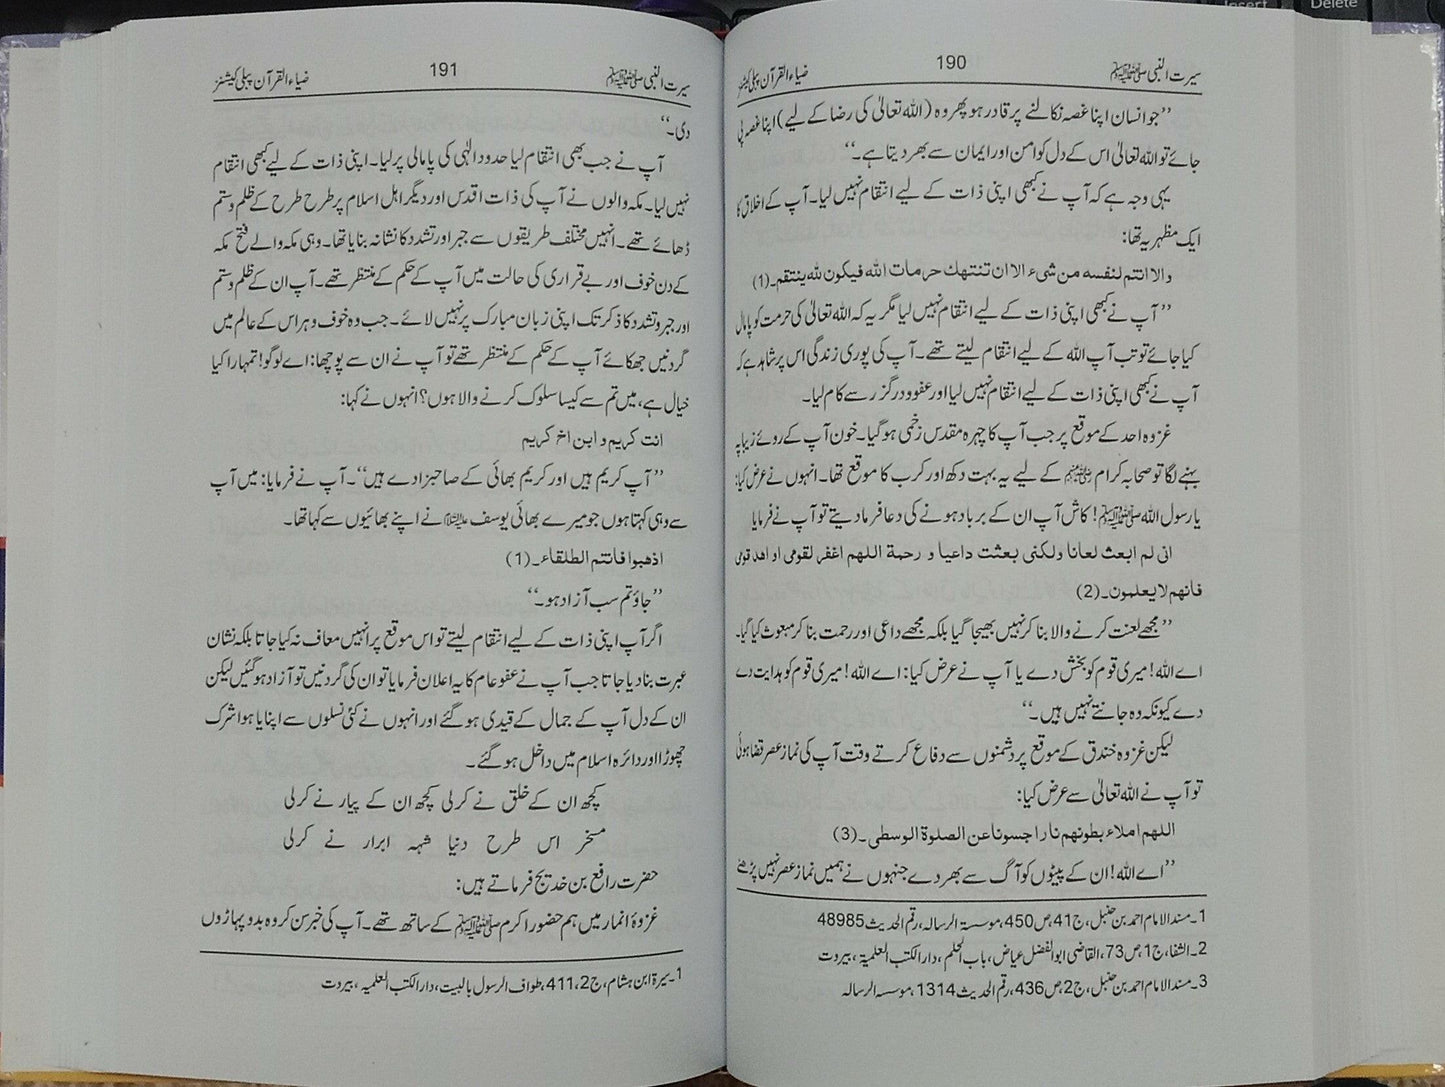 Insert
Delete
سیرت النبی ﷺ
190
ضیاء القرآن پبلی کیشنز
’’جو انسان اپنا غصہ نکالنے پر قادر ہو پھر وہ (اللہ تعالیٰ کی رضا کے لیے) اپنا غصہ پی
جائے تو اللہ تعالیٰ اس کے دل کو امن اور ایمان سے بھر دیتا ہے۔‘‘
یہی وجہ ہے کہ آپ نے کبھی اپنی ذات کے لیے انتقام نہیں لیا۔ آپ کے اخلاق کا
ایک مظہر یہ تھا:
والا انتم لنفسه من شیء الا ان تنتهك حرمات الله فيكون لله ينتقم۔(1)
’’آپ نے کبھی اپنی ذات کے لیے انتقام نہیں لیا مگر یہ کہ اللہ تعالیٰ کی حرمت کو پامال
کیا جائے تو تب آپ اللہ کے لیے انتقام لیتے تھے۔ آپ کی پوری زندگی اس پر شاہد ہے کہ
آپ نے کبھی اپنی ذات کے لیے انتقام نہیں لیا اور عفو و درگزر سے کام لیا۔
غزوہ احد کے موقع پر جب آپ کا چہرہ مقدس زخمی ہو گیا۔ خون آپ کے روئے زیبا پہ
بہنے لگا تو صحابہ کرام کے لیے یہ بہت دکھ اور کرب کا موقع تھا۔ انہوں نے عرض کیا:
یا رسول اللہ ﷺ! کاش آپ ان کے برباد ہونے کی دعا فرما دیتے تو آپ نے فرمایا
انی لم ابعث لعانا ولكنى بعثت داعيا و رحمة اللهم اغفر لقومى او اهد قومى
فانهم لا يعلمون۔(2)
’’مجھے لعنت کرنے والا بنا کر نہیں بھیجا گیا بلکہ مجھے داعی اور رحمت بنا کر مبعوث کیا گیا۔
اے اللہ! میری قوم کو بخش دے یا آپ نے عرض کیا: اے اللہ! میری قوم کو ہدایت دے
دے کیونکہ وہ جانتے نہیں ہیں۔‘‘
لیکن غزوہ خندق کے موقع پر دشمنوں سے دفاع کرتے وقت آپ کی نماز عصر قضا ہوئی
تو آپ نے اللہ تعالیٰ سے عرض کیا:
اللهم املاء بطونهم نارا حبسونا عن الصلوة الوسطى۔(3)
’’اے اللہ! ان کے پیٹوں کو آگ سے بھر دے جنہوں نے ہمیں نماز عصر نہیں پڑھنے
1۔ مسند الامام احمد بن حنبل، ج41، ص450، موسسۃ الرسالہ، رقم الحدیث48985
2۔ الشفا، ج1، ص73، القاضی ابو الفضل عیاض، باب الحلم، دار الکتب العلمیۃ، بیروت
3۔ مسند الامام احمد بن حنبل، ج2، ص436، رقم الحدیث1314، موسسۃ الرسالہ
سیرت النبی ﷺ
191
ضیاء القرآن پبلی کیشنز
دی۔‘‘
آپ نے جب بھی انتقام لیا حدود الٰہی کی پامالی پر لیا۔ اپنی ذات کے لیے کبھی انتقام
نہیں لیا۔ مکہ والوں نے آپ کی ذات اقدس اور دیگر اہل اسلام پر طرح طرح کے ظلم و ستم
ڈھائے تھے۔ انہیں مختلف طریقوں سے جبر اور تشدد کا نشانہ بنایا تھا۔ وہی مکہ والے فتح مکہ
کے دن خوف اور بے قراری کی حالت میں آپ کے حکم کے منتظر تھے۔ آپ ان کے ظلم و ستم
اور جبر و تشدد کا ذکر تک اپنی زبان مبارک پر نہیں لائے۔ جب وہ خوف و ہراس کے عالم میں
گردنیں جھکائے آپ کے حکم کے منتظر تھے تو آپ نے ان سے پوچھا: اے لوگو! تمہارا کیا
خیال ہے، میں تم سے کیسا سلوک کرنے والا ہوں؟ انہوں نے کہا:
انت كريم و ابن اخ كريم
’’آپ کریم ہیں اور کریم بھائی کے صاحبزادے ہیں‘‘۔ آپ نے فرمایا: میں آپ
سے وہی کہتا ہوں جو میرے بھائی یوسف علیہ السلام نے اپنے بھائیوں سے کہا تھا۔
اذهبوا فانتم الطلقاء۔(1)
’’جاؤ تم سب آزاد ہو۔‘‘
اگر آپ اپنی ذات کے لیے انتقام لیتے تو اس موقع پر انہیں معاف نہ کیا جاتا بلکہ نشان
عبرت بنا دیا جاتا جب آپ نے عفو عام کا یہ اعلان فرمایا تو ان کی گردنیں تو آزاد ہو گئیں لیکن
ان کے دل آپ کے جمال کے قیدی ہو گئے اور انہوں نے کئی نسلوں سے اپنایا ہوا شرک
چھوڑا اور دائرہ اسلام میں داخل ہو گئے۔
کچھ ان کے خلق نے کر لی کچھ ان کے پیار نے کر لی
مسخر اس طرح دنیا شہہ ابرار نے کر لی
حضرت رافع بن خدیج فرماتے ہیں:
غزوۂ انمار میں ہم حضور اکرم ﷺ کے ساتھ تھے۔ آپ کی خبر سن کر وہ بدو پہاڑوں
1۔ سیرۃ ابن ہشام، ج2، 411، طواف الرسول بالبیت، دار الکتب العلمیہ، بیروت